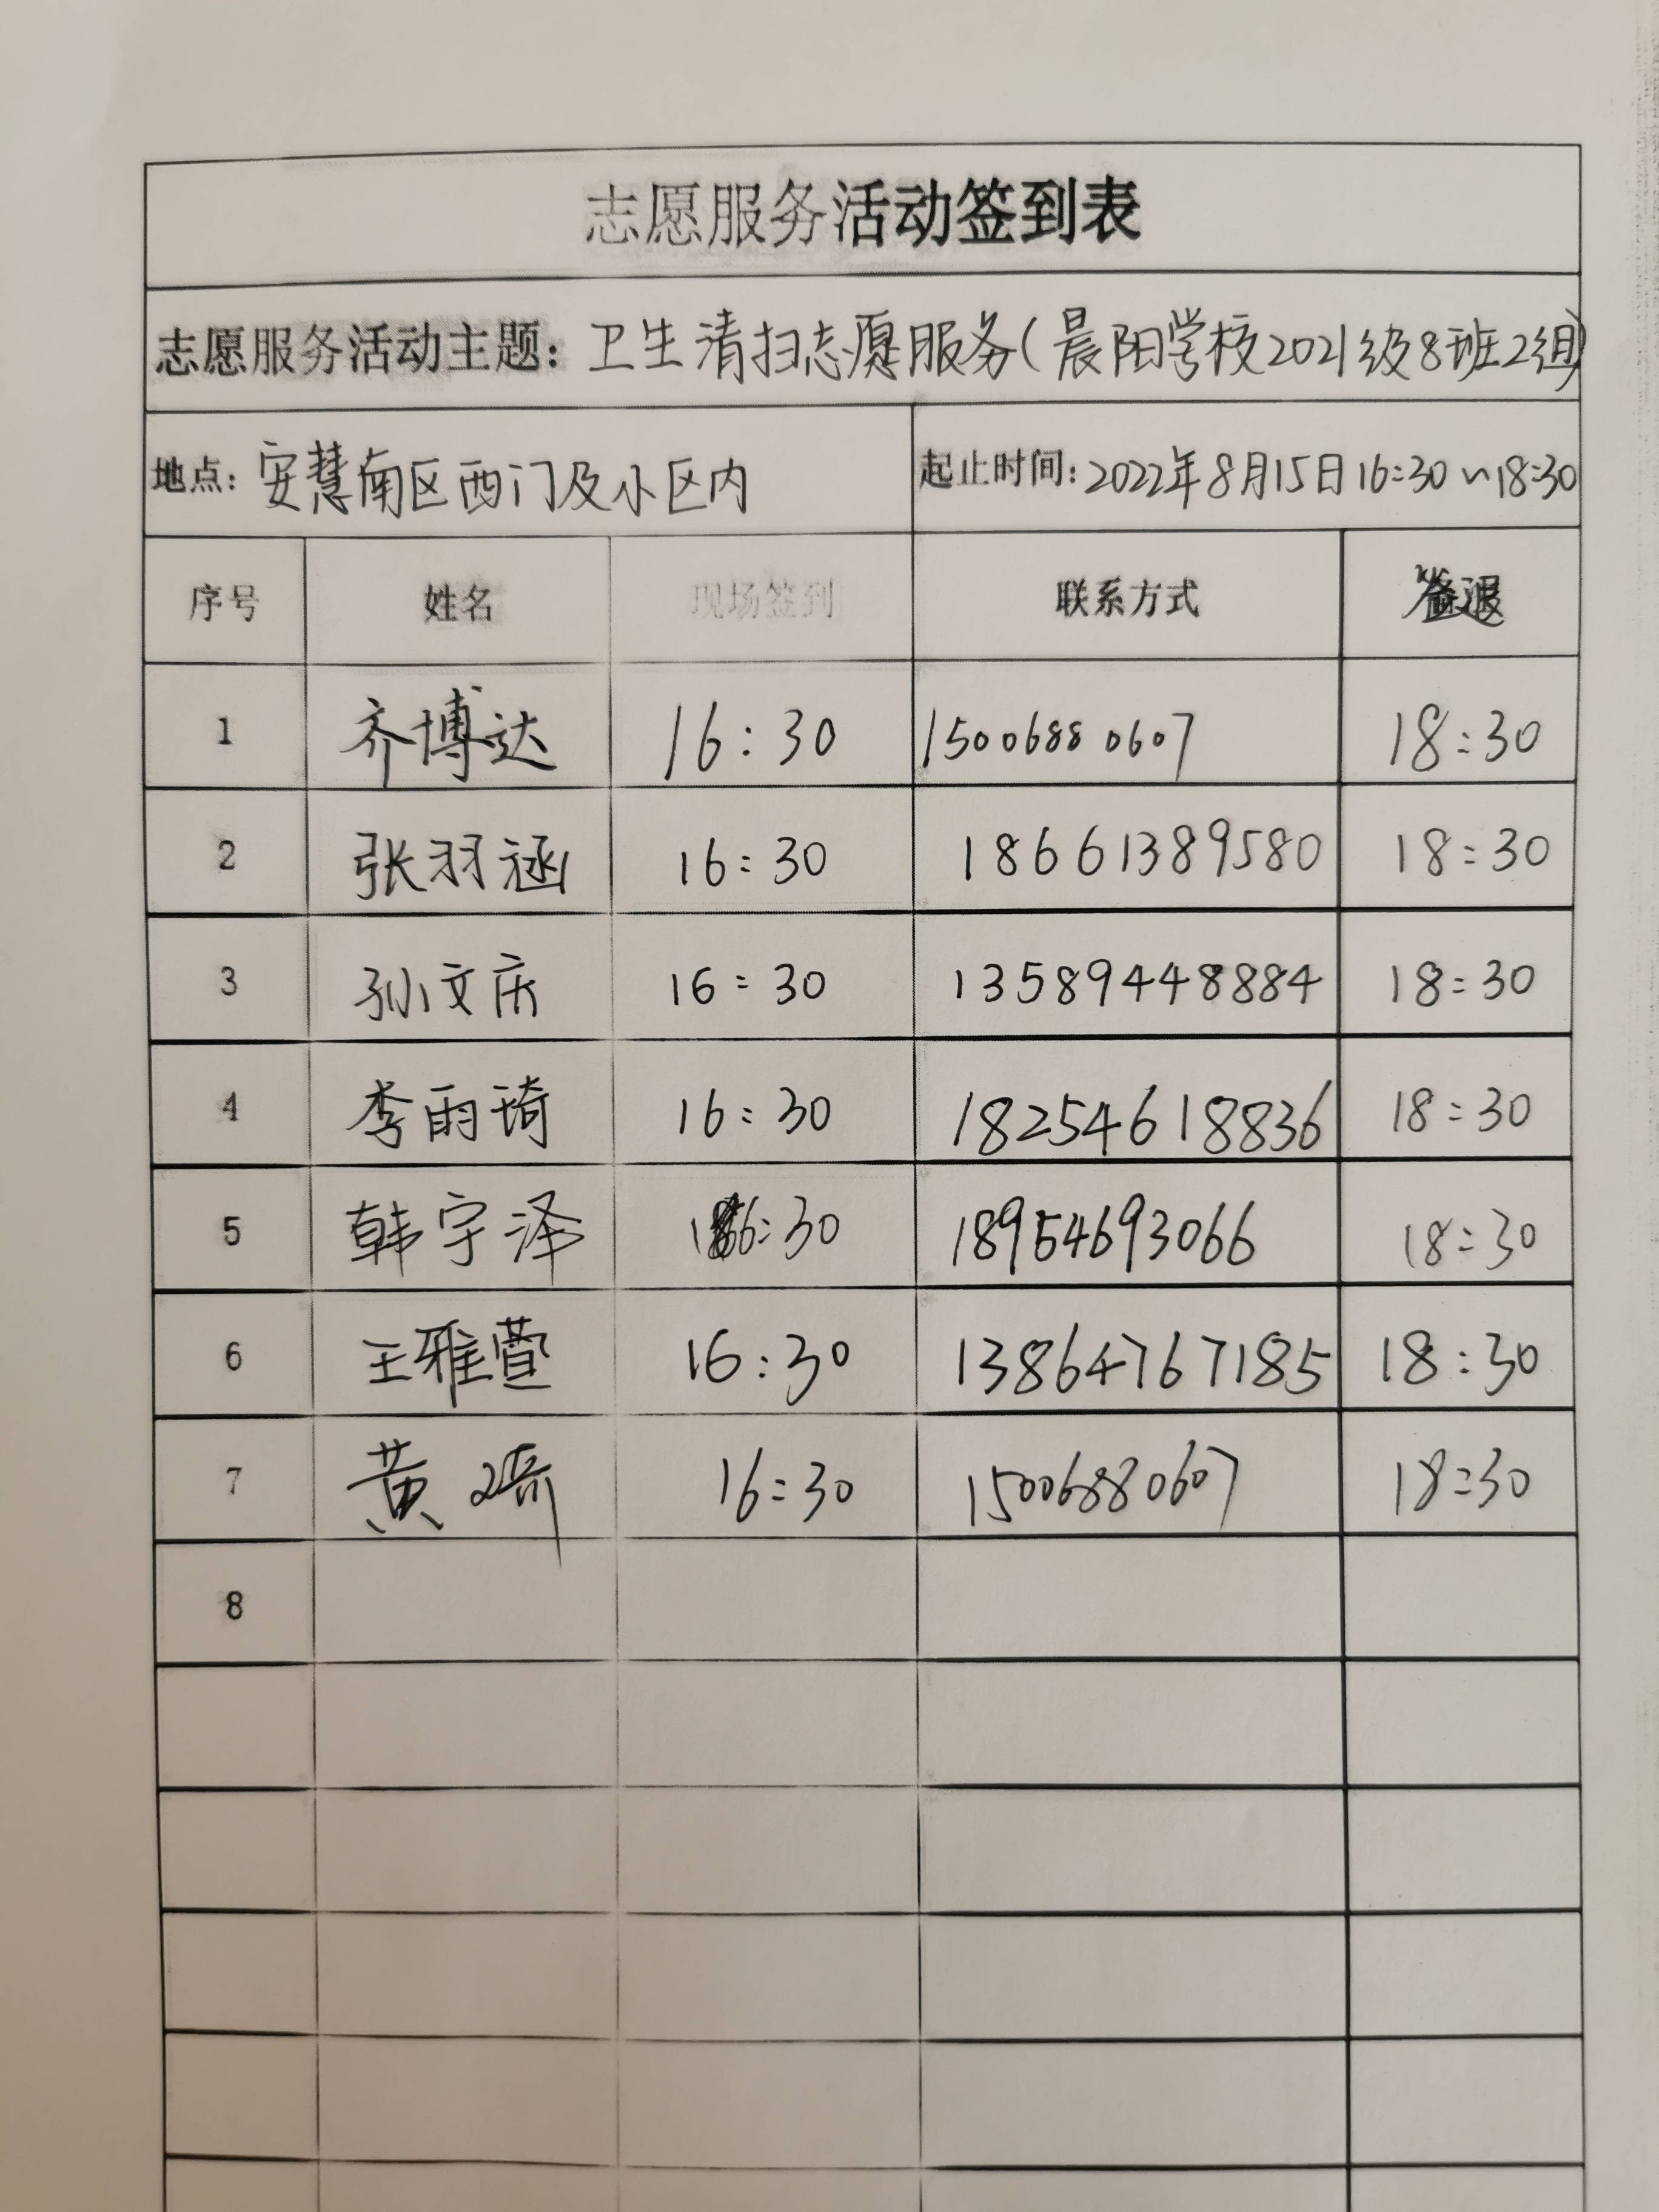 志愿服务活动签到表
志愿服务活动主题：卫生清扫志愿服务(晨阳学校2021级8班2组)
地点：安慧南区西门及小区内 起止时间：2022年8月15日16:30~18:30
序号 姓名 现场签到 联系方式 签退
1 齐博达 16:30 15006880607 18:30
2 张羽涵 16:30 18661389580 18:30
3 孙文庆 16:30 13589448884 18:30
4 李雨琦 16:30 18254618836 18:30
5 韩宇泽 16:30 18954693066 18:30
6 王雅萱 16:30 13864767185 18:30
7 黄 16:30 15006880607 18:30
8